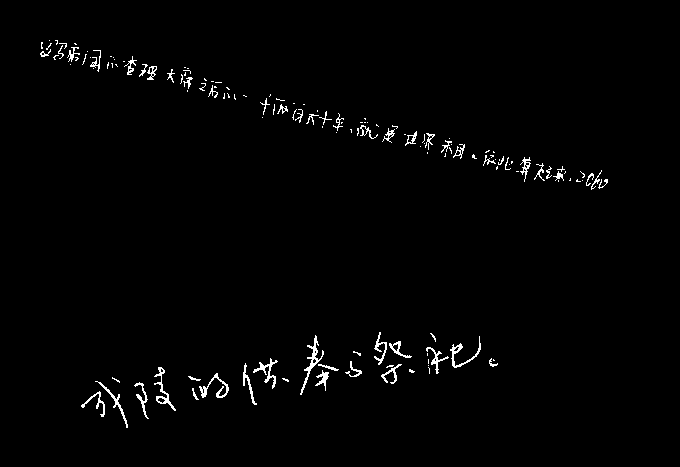 罗马帝国的查理大帝之后的一千两百六十年,就是世界末日。依此算起来,2060
成陵的供奉与祭祀。